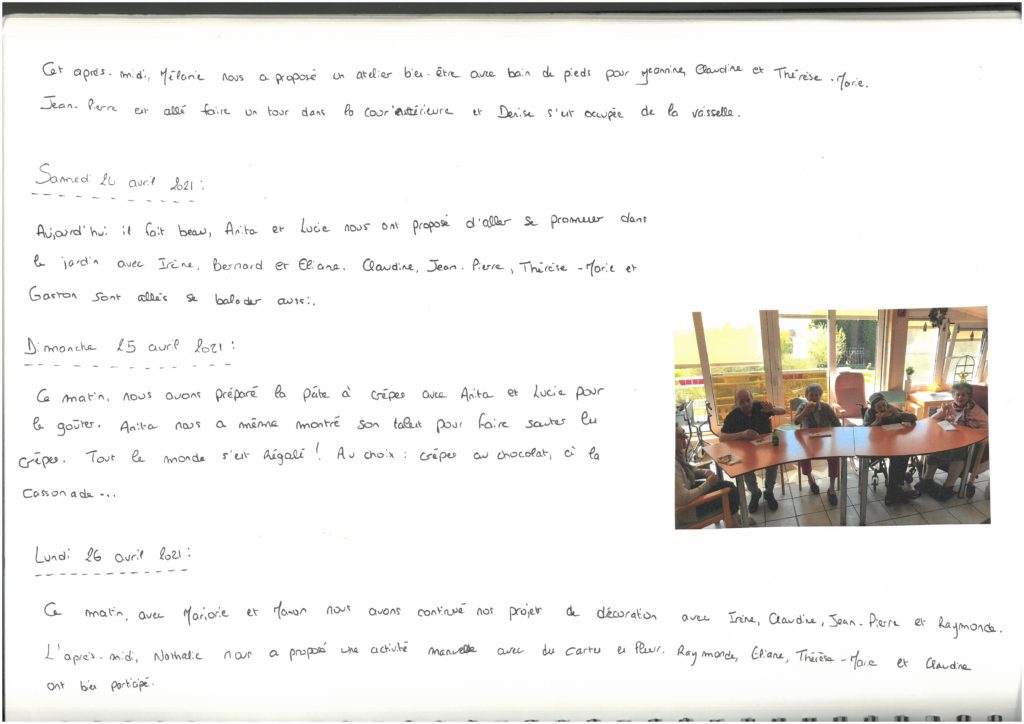 Cet après-midi, Mélanie nous a proposé un atelier bien-être avec bain de pieds pour Jeannine, Claudine et Thérèse-Marie.
Jean-Pierre est allé faire un tour dans la cour extérieure et Denise s'est occupée de la vaisselle.
Samedi 24 avril 2021 :
Aujourd'hui il fait beau, Anita et Lucie nous ont proposé d'aller se promener dans
le jardin avec Irène, Bernard et Eliane. Claudine, Jean-Pierre, Thérèse-Marie et
Gaston sont allés se balader aussi.
Dimanche 25 avril 2021 :
Ce matin, nous avons préparé la pâte à crêpes avec Anita et Lucie pour
le goûter. Anita nous a même montré son talent pour faire sauter les
crêpes. Tout le monde s'est régalé ! Au choix : crêpes au chocolat, à la
Cassonade...
Lundi 26 avril 2021 :
Ce matin, avec Marjorie et Manon nous avons continué nos projets de décoration avec Irène, Claudine, Jean-Pierre et Raymonde.
L'après-midi, Nathalie nous a proposé une activité manuelle avec des cartes en fleur. Raymonde, Eliane, Thérèse-Marie et Claudine
ont bien participé.